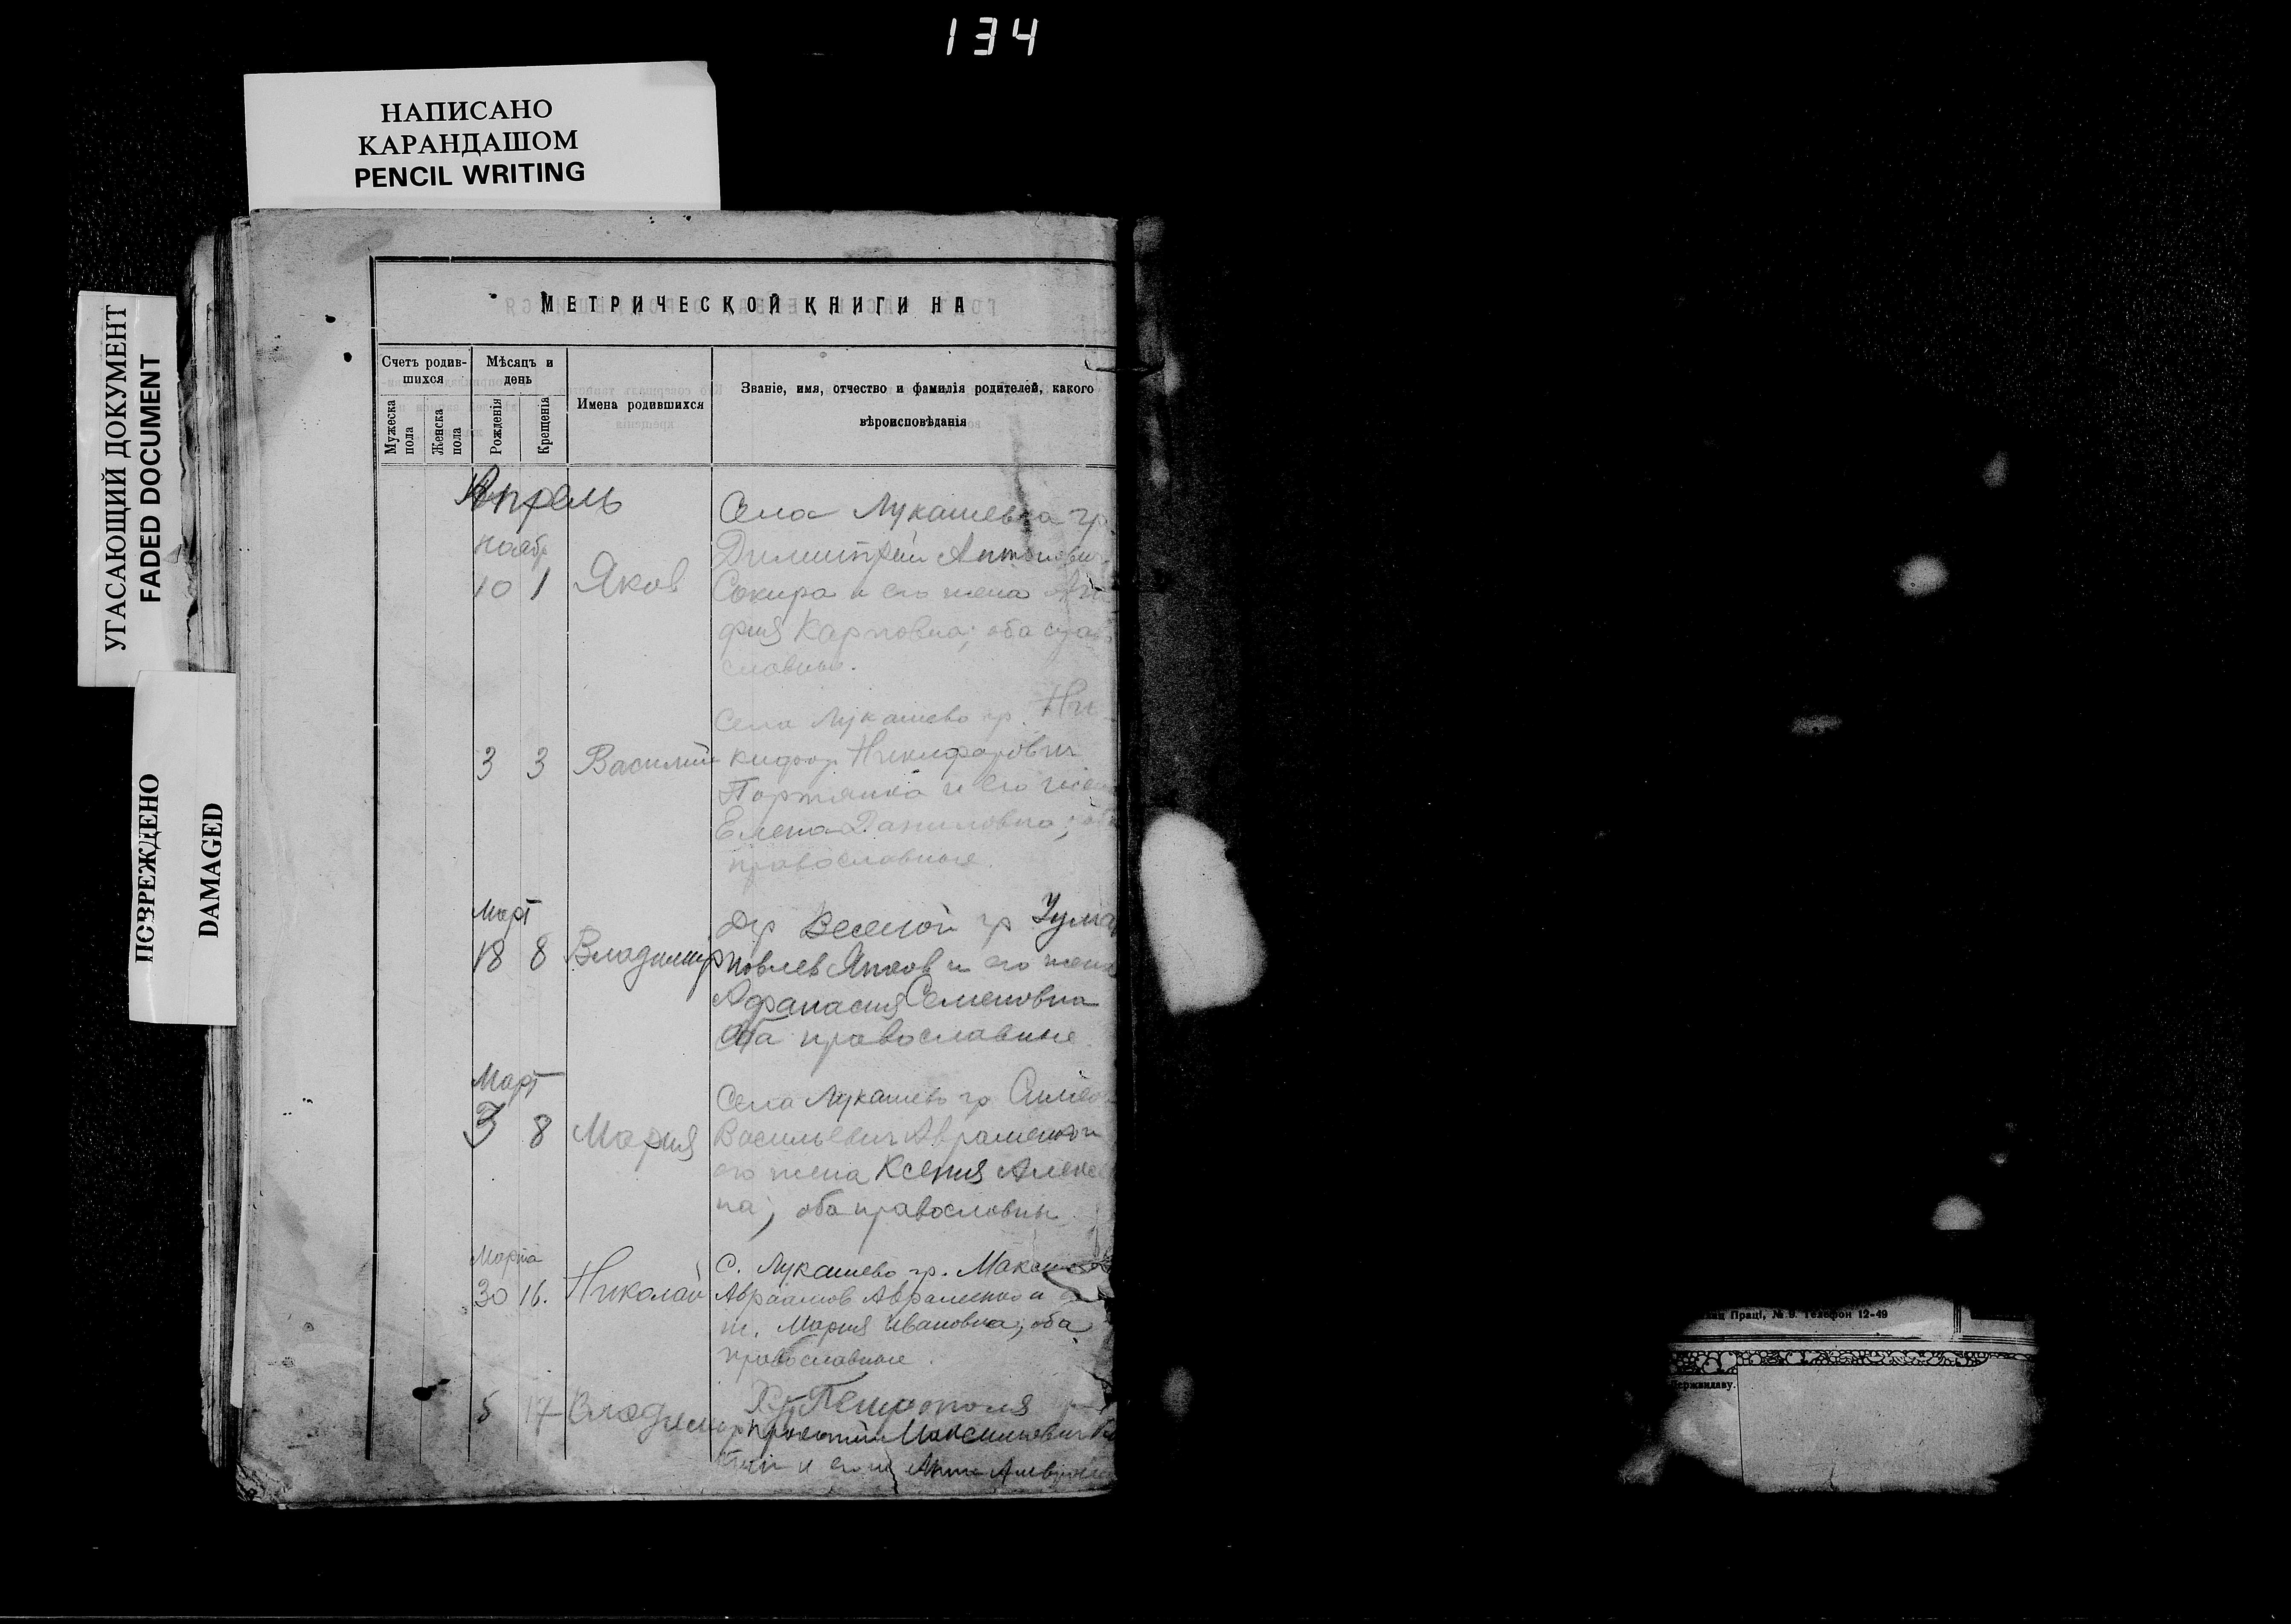 134
НАПИСАНО
КАРАНДАШОМ
PENCIL WRITING
УГАСАЮЩИЙ ДОКУМЕНТ
FADED DOCUMENT
ПОВРЕЖДЕНО
DAMAGED
МЕТРИЧЕСКОЙ КНИГИ НА
Счетъ родив-
шихся
Мужеска
пола
Женска
пола
Мѣсяцъ и
день
Рожденія
Крещенія
Имена родившихся
Званіе, имя, отчество и фамилія родителей, какого
вѣроисповѣданія
Апрель
Ноябр
10 1 Яков
Села Лукашевка гр.
Димитрий Антонови
Сокира и его жена
фия Карповна; оба прав
славные.
3 3 Василий
Села Лукашево гр. Ни-
кифор Никифорович
Портянка и его жена
Елена Даниловна; оба
православные.
Март
18 8 Владимир
Дер Веселой гр
Яков и его жена
Афанасия Семеновна
Оба православные.
Март
3 8 Мария
Села Лукашево гр Симео
Васильевич Авраменко и
его жена Ксения Алексе
на; оба православны
Марта
30 16. Николай
С. Лукашево гр. Максим
Авраамов Авраменко и
ж. Мария Ивановна; оба
православные.
5 17 Владимир
Максимович
и его ж Анна
Праці, № 9. Телефон 12-49